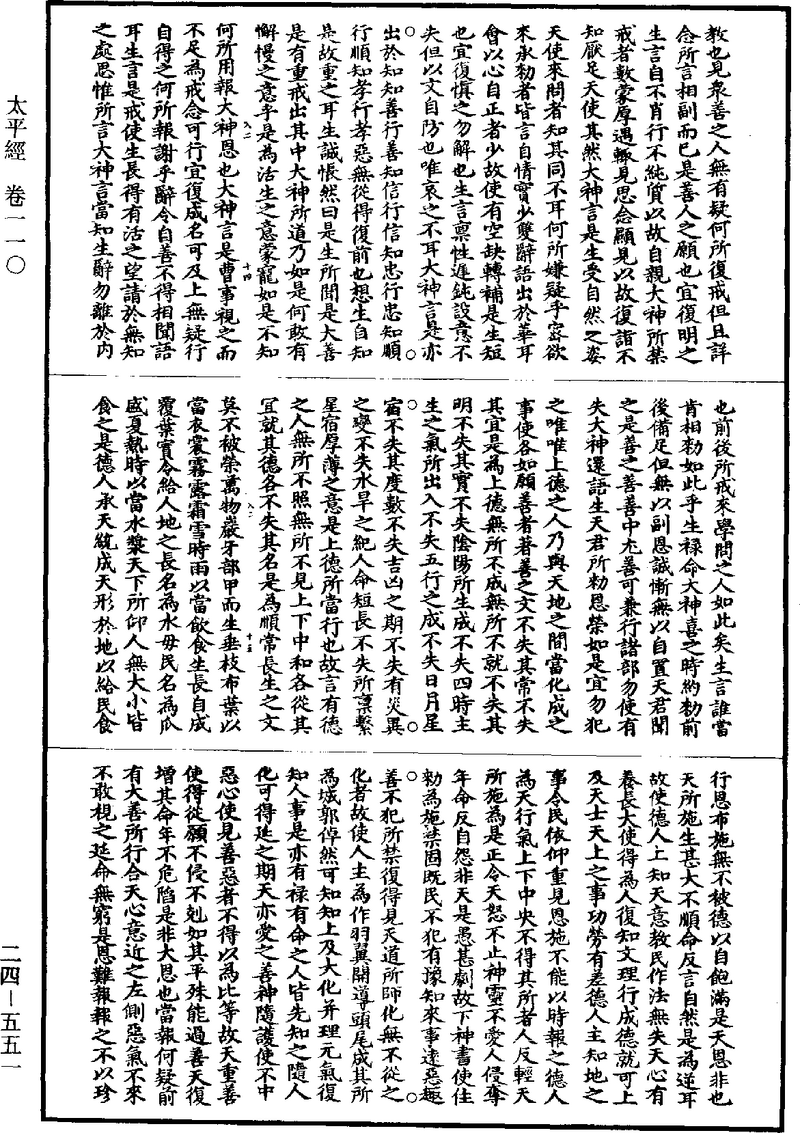 太平經 卷一一〇
教也見衆善之人無有疑何所復戒但且詳
念所言相副而已是善人之願也宜復明之
生言自不肖行不純質以故自親大神所禁
戒者數蒙厚遇輒見思念顧見以故復詣不
知厭足天使其然大神言是生受自然之姿
天使來問者知其同不耳何所嫌疑乎密欲
來承勑者皆言自情實少雙辭語出於華耳
會以心自正者少故使有空缺轉補是生短
也宜復慎之勿解也生言禀性遲鈍設意不
失但以文自防也唯哀之不耳大神言是亦
出於知知善行善知信行信知忠行忠知順
行順知孝行孝惡無從得復前也想生自知
是故重之耳生誠悵然曰是生所聞是大善
是有重戒出其中大神所道乃如是何敢有
懈慢之意乎是為活生之意蒙寵如是不知
何所用報大神恩也大神言是曹事視之而
不足為戒念可行宜復成名可及上無疑行
自得之何所報謝乎辭令自善不得相聞語
耳生言是戒使生長得有活之望請於無知
之處思惟所言大神言當知生辭勿離於內
也前後所戒來學問之人如此矣生言誰當
肯相勑如此乎生禄命大神喜之時約勑前
後備足但無以副恩誠慚無以自置天君聞
之是善之善善中尤善可兼行諸部勿使有
失大神還語生天君所勑恩榮如是宜勿犯
之唯唯上德之人乃與天地之間當化成之
事使各如願善者著善之文不失其常不失
其宜是為上德無所不成無所不就不失其
明不失其實不失陰陽所生成不失四時主
生之氣所出入不失五行之成不失日月星
宿不失其度數不失吉凶之期不失有災異
之變不失水旱之紀人命短長不失所禀繫
星宿厚薄之意是上德所當行也故言有德
之人無所不照無所不見上下中和各從其
宜就其德各不失其名是為順常長生之文
莫不被榮萬物巖牙部甲而生垂枝布葉以
當衣裳霧露霜雪時雨以當飲食生長自成
覆葉實令給人地之長名為水母民名為瓜
盛夏熱時以當水漿天下所仰人無大小皆
食之是德人承天統成天形於地以給民食
行恩布施無不被德以自飽滿是天恩非也
天所施生甚大不順命反言自然是為逆耳
故使德人上知天意教民作法無失天心有
養長大使得為人復知文理行成德就可上
及天士天上之事功勞有差德人主知地之
事令民依仰重見恩施不能以時報之德人
為天行氣上下中央不得其所者人反輕天
所施為是正令天怒不止神靈不愛人侵奪
年命反自怨非天是愚甚劇故下神書使住
勑為施禁固既民不犯有豫知來事遠惡趣
善不犯所禁復得見天道所師化無不從之
化者故使人主為作羽翼開導頭尾成其所
為城郭倬然可知知上及大化并理元氣復
知人事是亦有禄有命之人皆先知之隨人
化可得延之期天亦愛之善神隨護使不中
惡心使見善惡者不得以為比等故天重善
使得從願不侵不剋如其平殊能過善天復
增其命年不危陷是非大恩也當報何疑前
有大善所行合天心意近之左側惡氣不來
不敢視之延命無窮是恩難報報之不以珍
二四－五五一